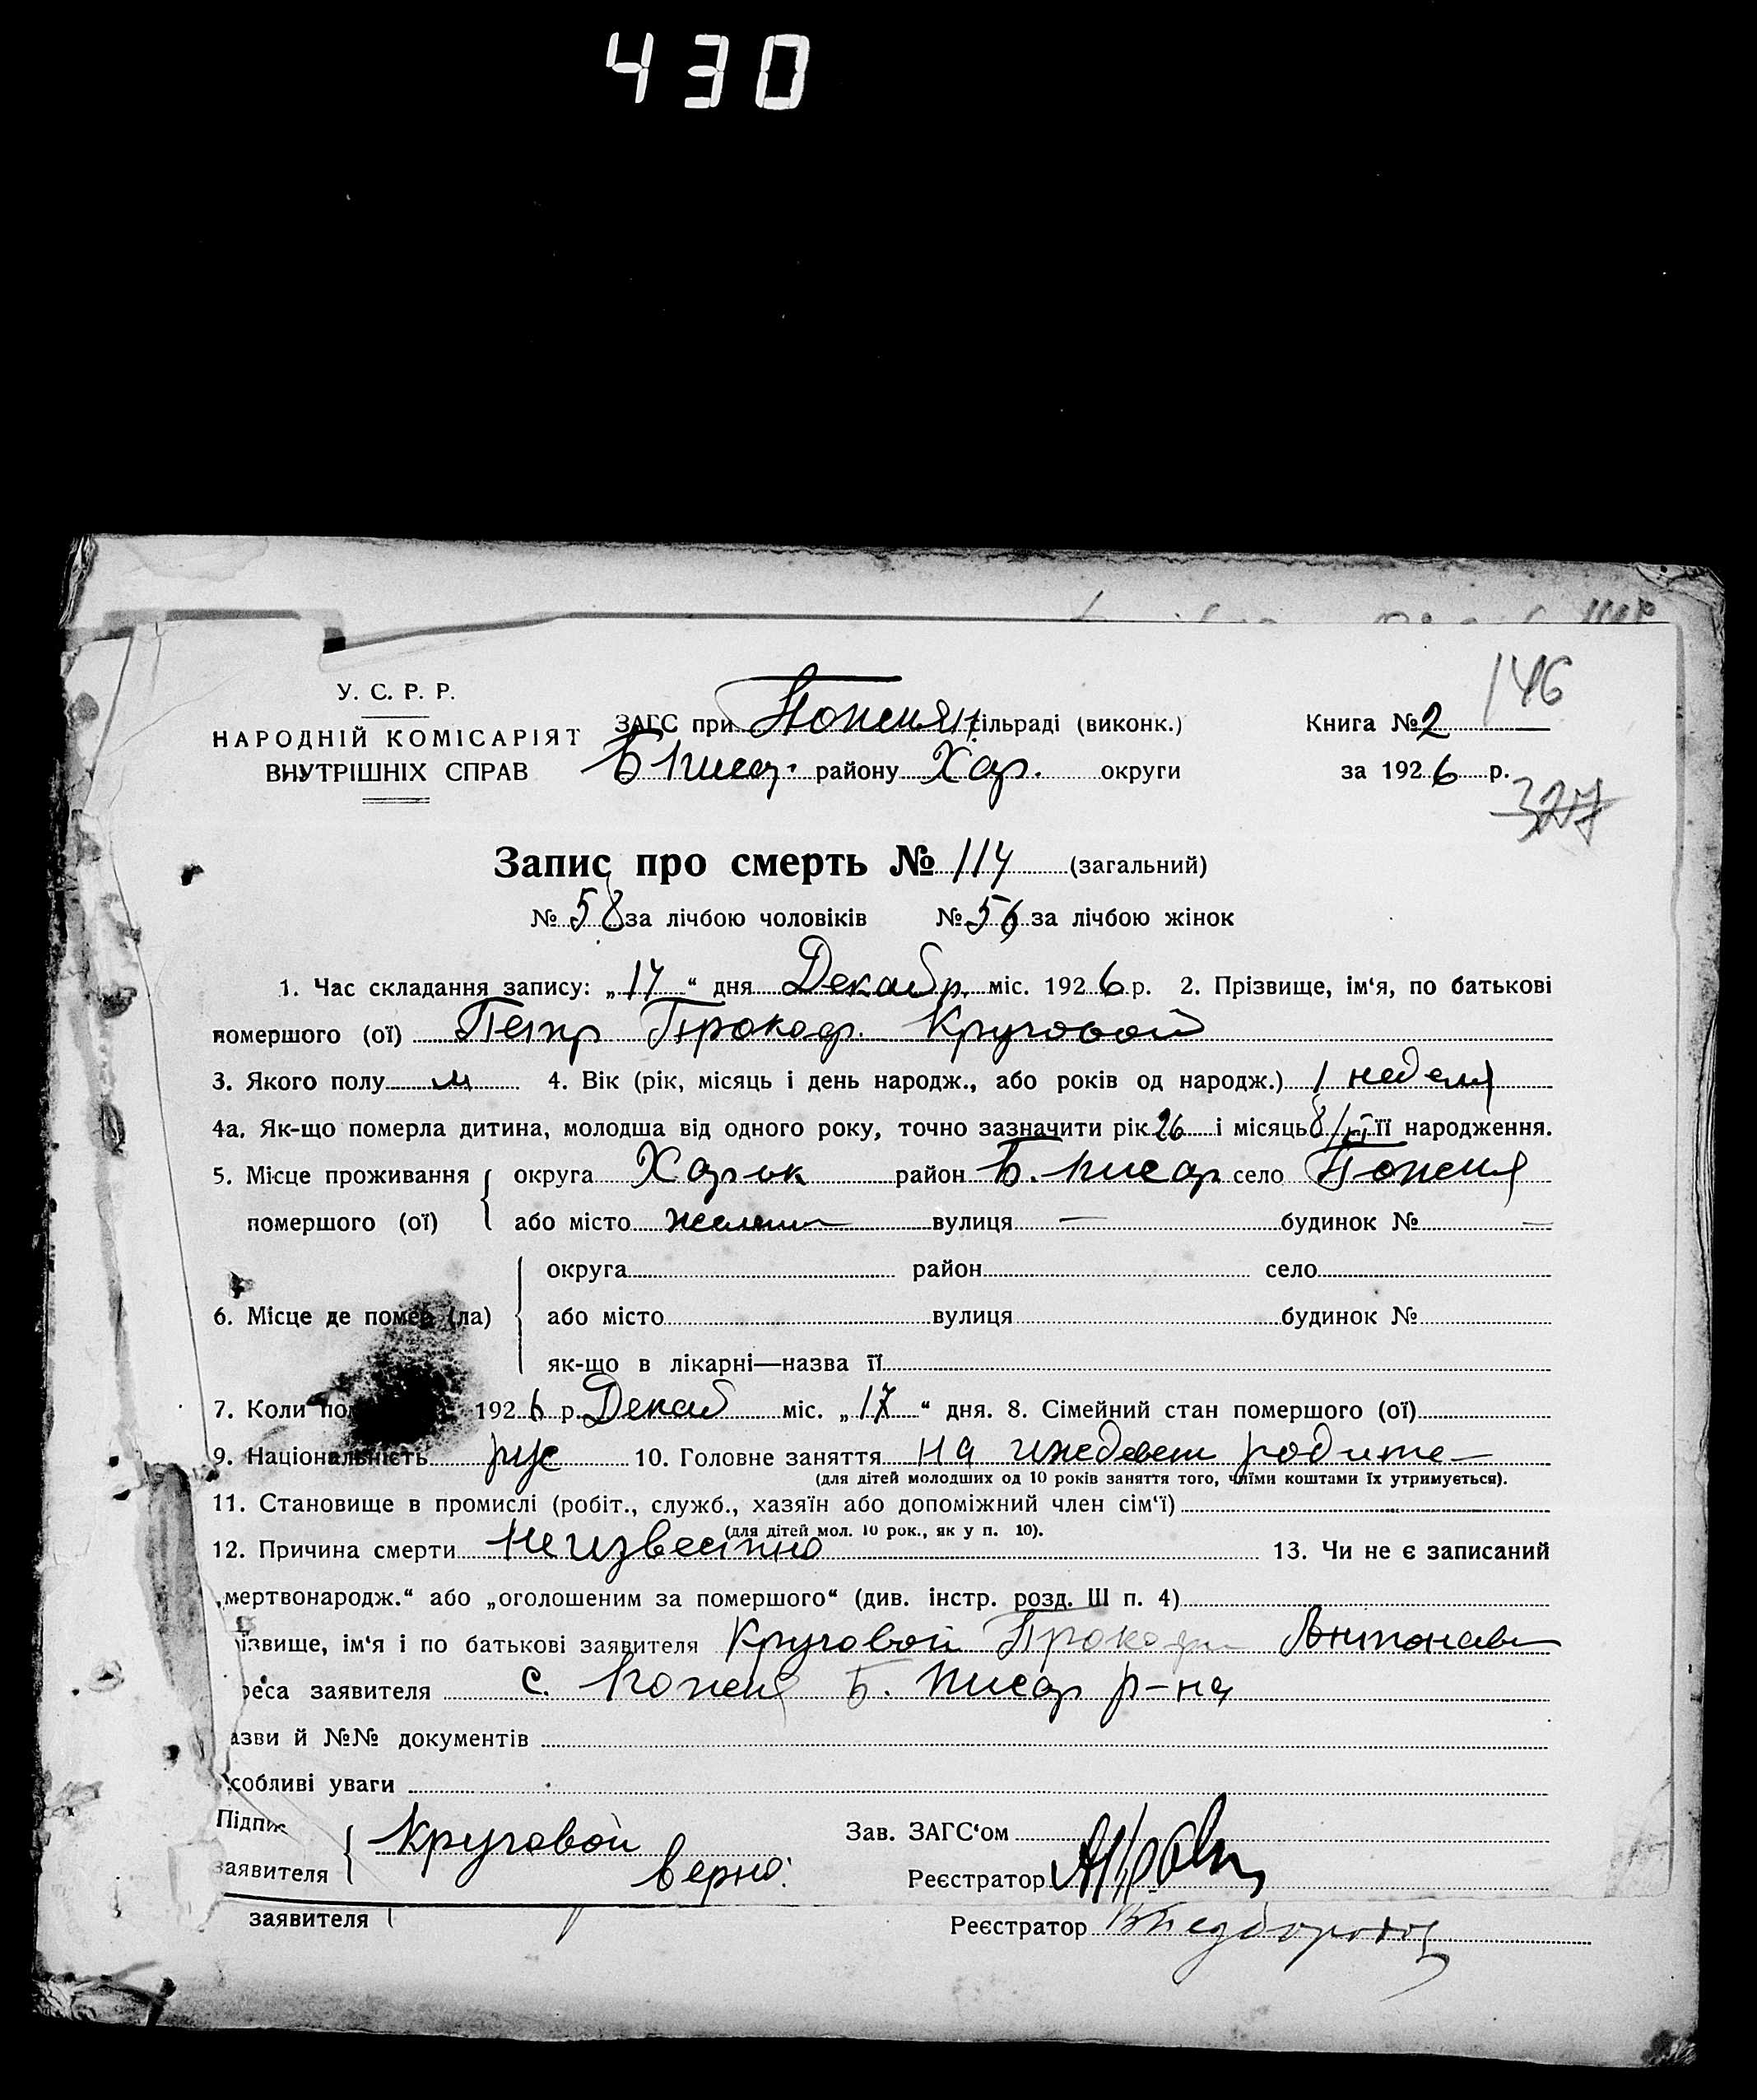 430
146
У. С. Р. Р.
НАРОДНІЙ КОМІСАРІЯТ
ВНУТРІШНІХ СПРАВ
ЗАГС при Попенян сільраді (виконк.)
Б Писар. району Хар. округи
Книга № 2
за 1926 р.
327
Запис про смерть № 114 (загальний)
№ 58 за лічбою чоловіків № 56 за лічбою жінок
1. Час складання запису: „17“ дня Декабр. міс. 1926 р. 2. Прізвище, ім‘я, по батькові
помершого (ої) Петр Прокоф. Круговой
3. Якого полу м 4. Вік (рік, місяць і день народж., або років од народж.) 1 неделя
4а. Як-що померла дитина, молодша від одного року, точно зазначити рік 26 і місяць її народження.
5. Місце проживання округа Харьк район Б. Писар село
помершого (ої) або місто вулиця — будинок № —
округа район село
6. Місце де помер (ла) або місто вулиця будинок №
як-що в лікарні—назва її
7. Коли 1926 р. Декаб міс. „17“ дня. 8. Сімейний стан помершого (ої)
9. Національність рус 10. Головне заняття на иждевен родите—
(для дітей молодших од 10 років заняття того, чиїми коштами їх утримується).
11. Становище в промислі (робіт., служб., хазяїн або допоміжний член сім‘ї)
(для дітей мол. 10 рок., як у п. 10).
12. Причина смерти Неизвестно 13. Чи не є записаний
„мертвонародж.“ або „оголошеним за помершого“ (див. інстр. розд. III п. 4)
ізвище, ім‘я і по батькові заявителя Круговой Прокофи Антонов
реса заявителя с. Б. Писар р-на
азви й №№ документів
собливі уваги
Підпис
заявителя Круговой
Верно:
Зав. ЗАГС‘ом
Реєстратор
заявителя
Реєстратор